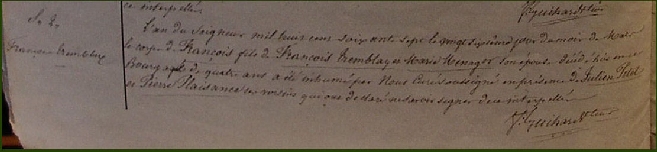 de interpellés
J. Guichard ptre
S. 2.
François Tremblay
L'an du Seigneur mil huit cent soixante sept le vingt septième jour du mois de Mars
le corps de François fils de François Tremblay et Marie son épouse décédé hier en ce
bourg agé de quatre ans a été inhumé par Nous Curé soussigné en présence de Julien
et Pierre Plaisance les voisins qui ont déclaré ne savoir signer de ce interpellés
J. Guichard ptre